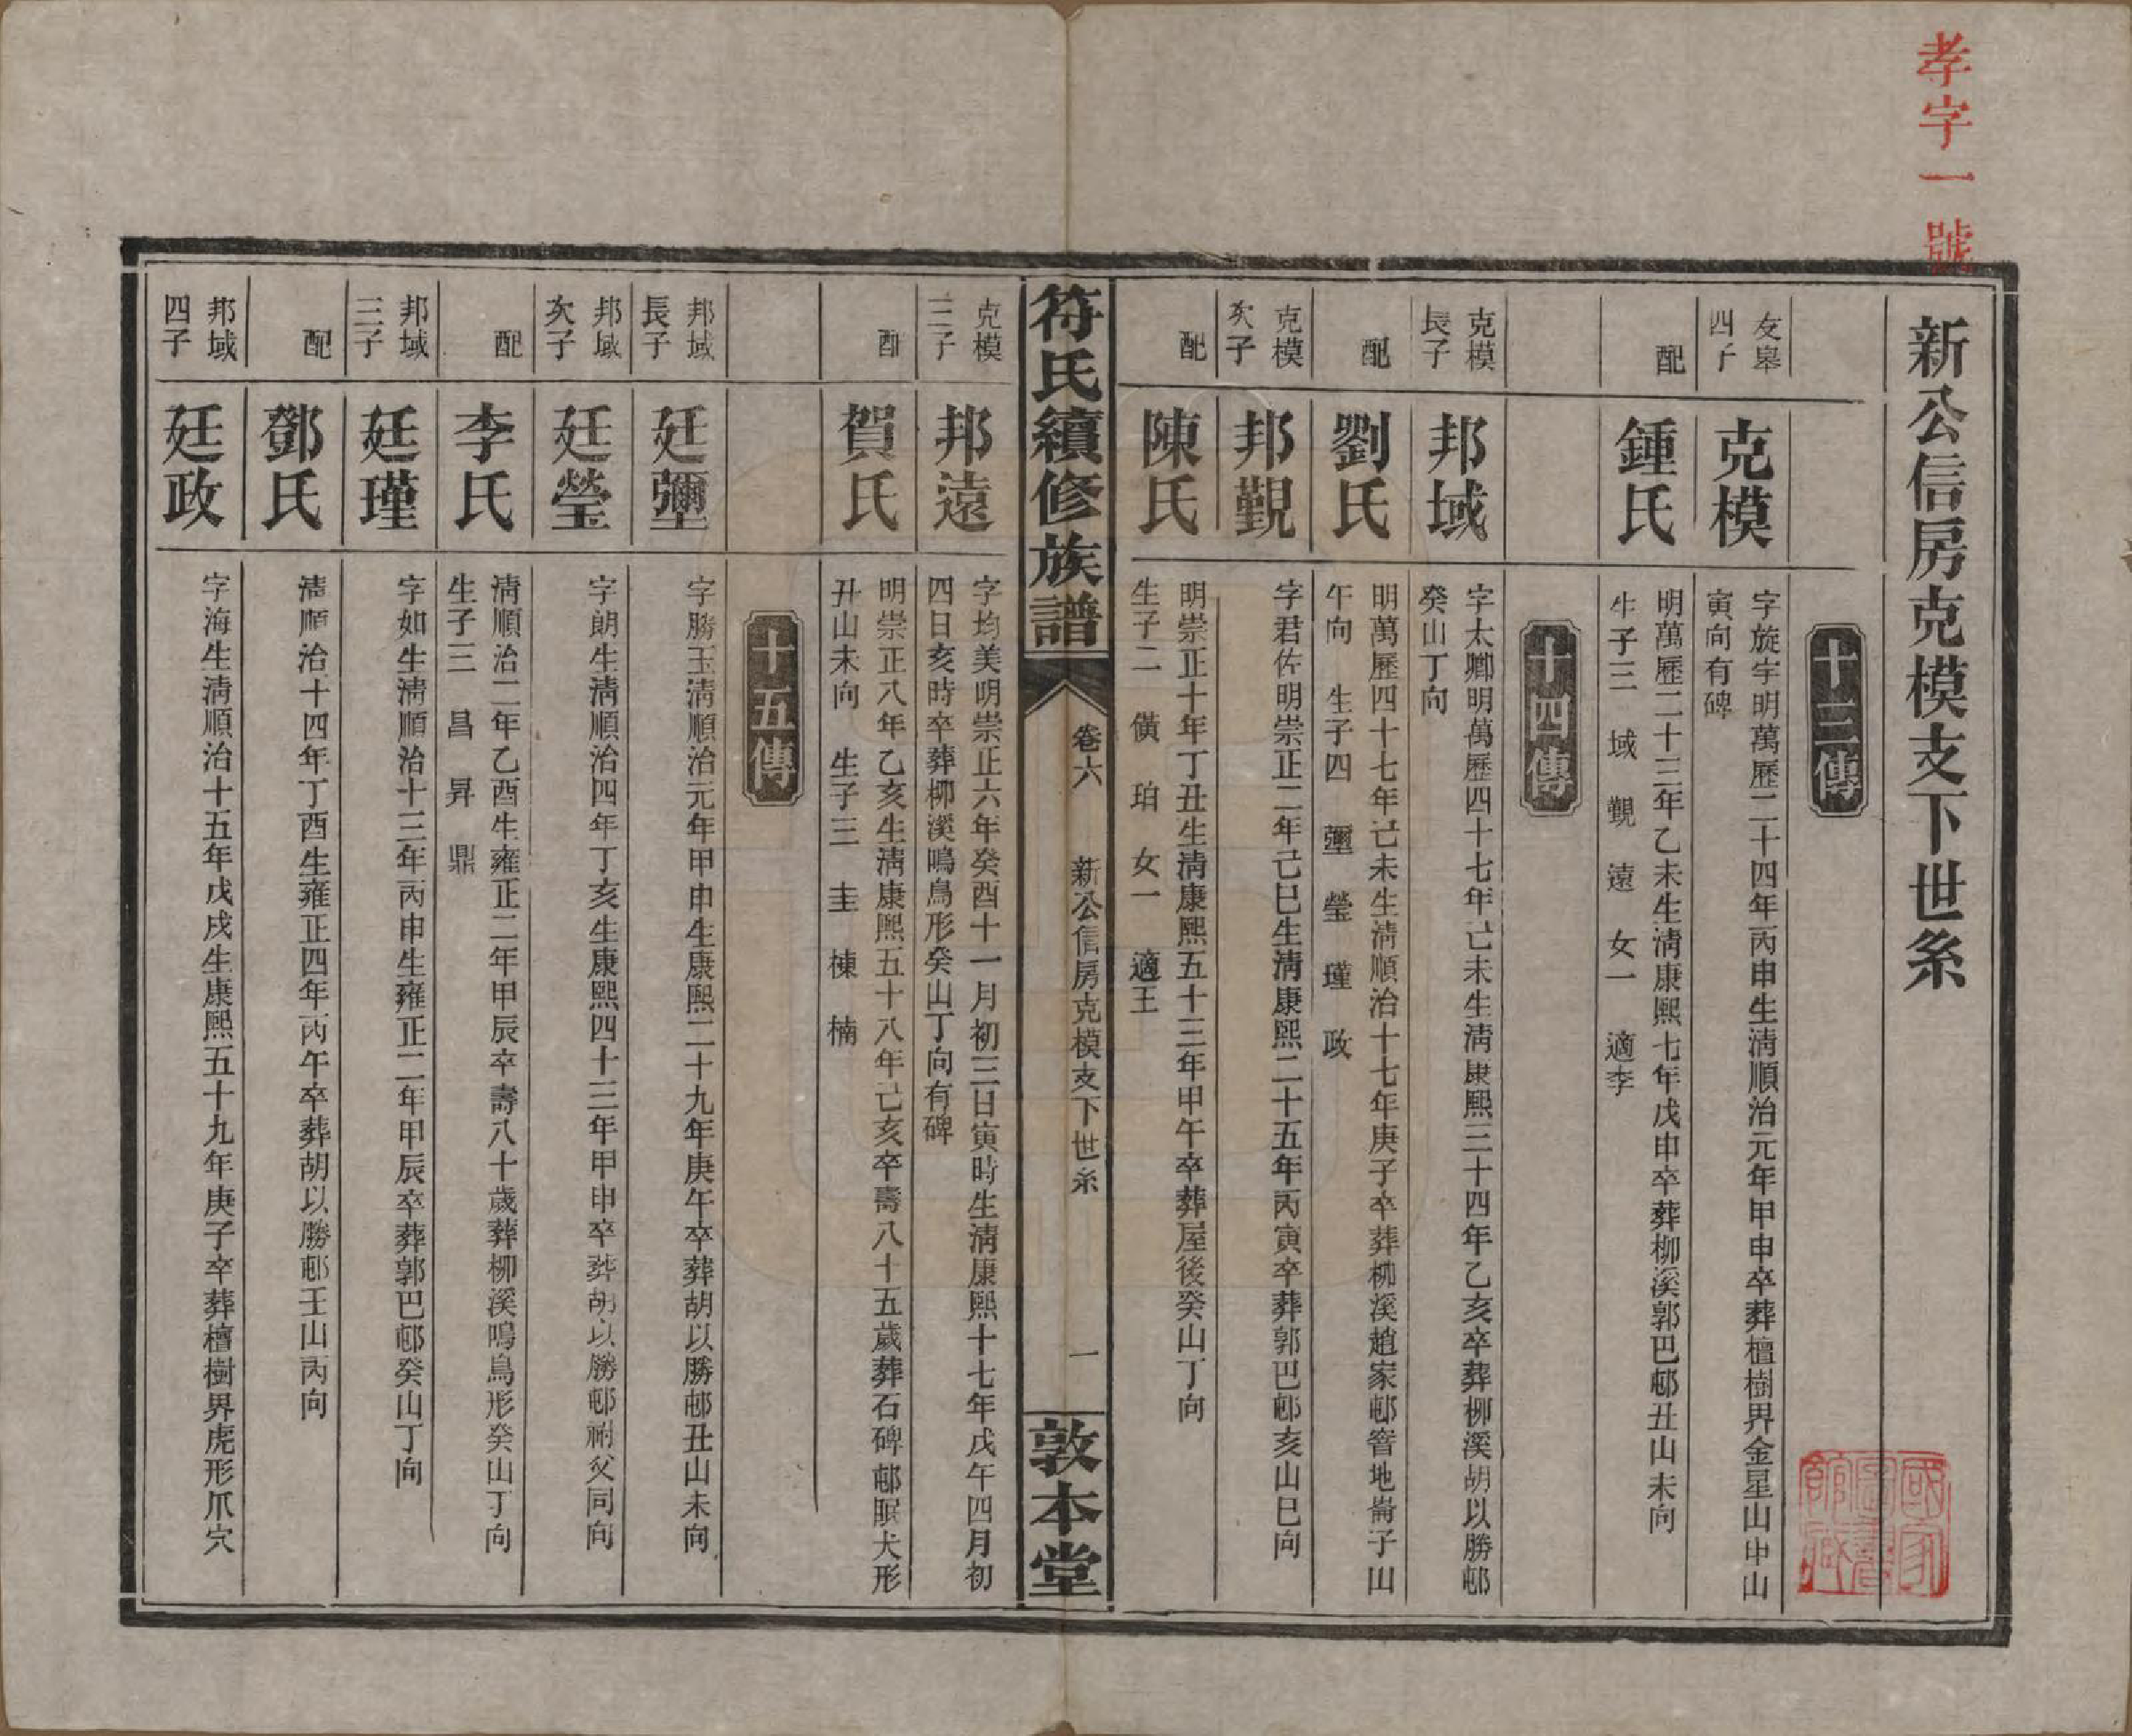 孝字一號
新公信房克模支下世系
十三傳
友皋四子
克模
字旋宇明萬歷二十四年丙申生清順治元年甲申卒葬檀樹界金星山申山
寅向有碑
配
鍾氏
明萬歷二十三年乙未生清康熙七年戊申卒葬柳溪郭巴邨丑山未向
生子三 域 觀 遠 女一 適李
十四傳
克模長子
邦域
字太卿明萬歷四十七年己未生清康熙三十四年乙亥卒葬柳溪胡以勝邨
癸山丁向
配
劉氏
明萬歷四十七年己未生清順治十七年庚子卒葬柳溪趙家邨窨地崙子山
午向 生子四 壐 瑩 瑾 政
克模次子
邦觀
字君佐明崇正二年己巳生清康熙二十五年丙寅卒葬郭巴邨亥山巳向
配
陳氏
明崇正十年丁丑生清康熙五十三年甲午卒葬屋後癸山丁向
生子二 儣 珀 女一 適王
符氏續修族譜
卷六 新公信房克模支下世系
一
敦本堂
克模三子
邦遠
字均美明崇正六年癸酉十一月初三日寅時生清康熙十七年戊午四月初
四日亥時卒葬柳溪鳴鳥形癸山丁向有碑
配
賀氏
明崇正八年乙亥生清康熙五十八年己亥卒壽八十五歲葬石碑邨眠犬形
丑山未向 生子三 圭 棟 楠
十五傳
邦域長子
廷壐
字勝玉清順治元年甲申生康熙二十九年庚午卒葬胡以勝邨丑山未向
邦域次子
廷瑩
字朗生清順治四年丁亥生康熙四十三年甲申卒葬胡以勝邨祔父同向
配
李氏
清順治二年乙酉生雍正二年甲辰卒壽八十歲葬柳溪鳴鳥形癸山丁向
生子三 昌 昇 鼎
邦域三子
廷瑾
字如生清順治十三年丙申生雍正二年甲辰卒葬郭巴邨癸山丁向
配
鄧氏
清順治十四年丁酉生雍正四年丙午卒葬胡以勝邨壬山丙向
邦域四子
廷政
字海生清順治十五年戊戌生康熙五十九年庚子卒葬檀樹界虎形爪穴
國家圖書館藏